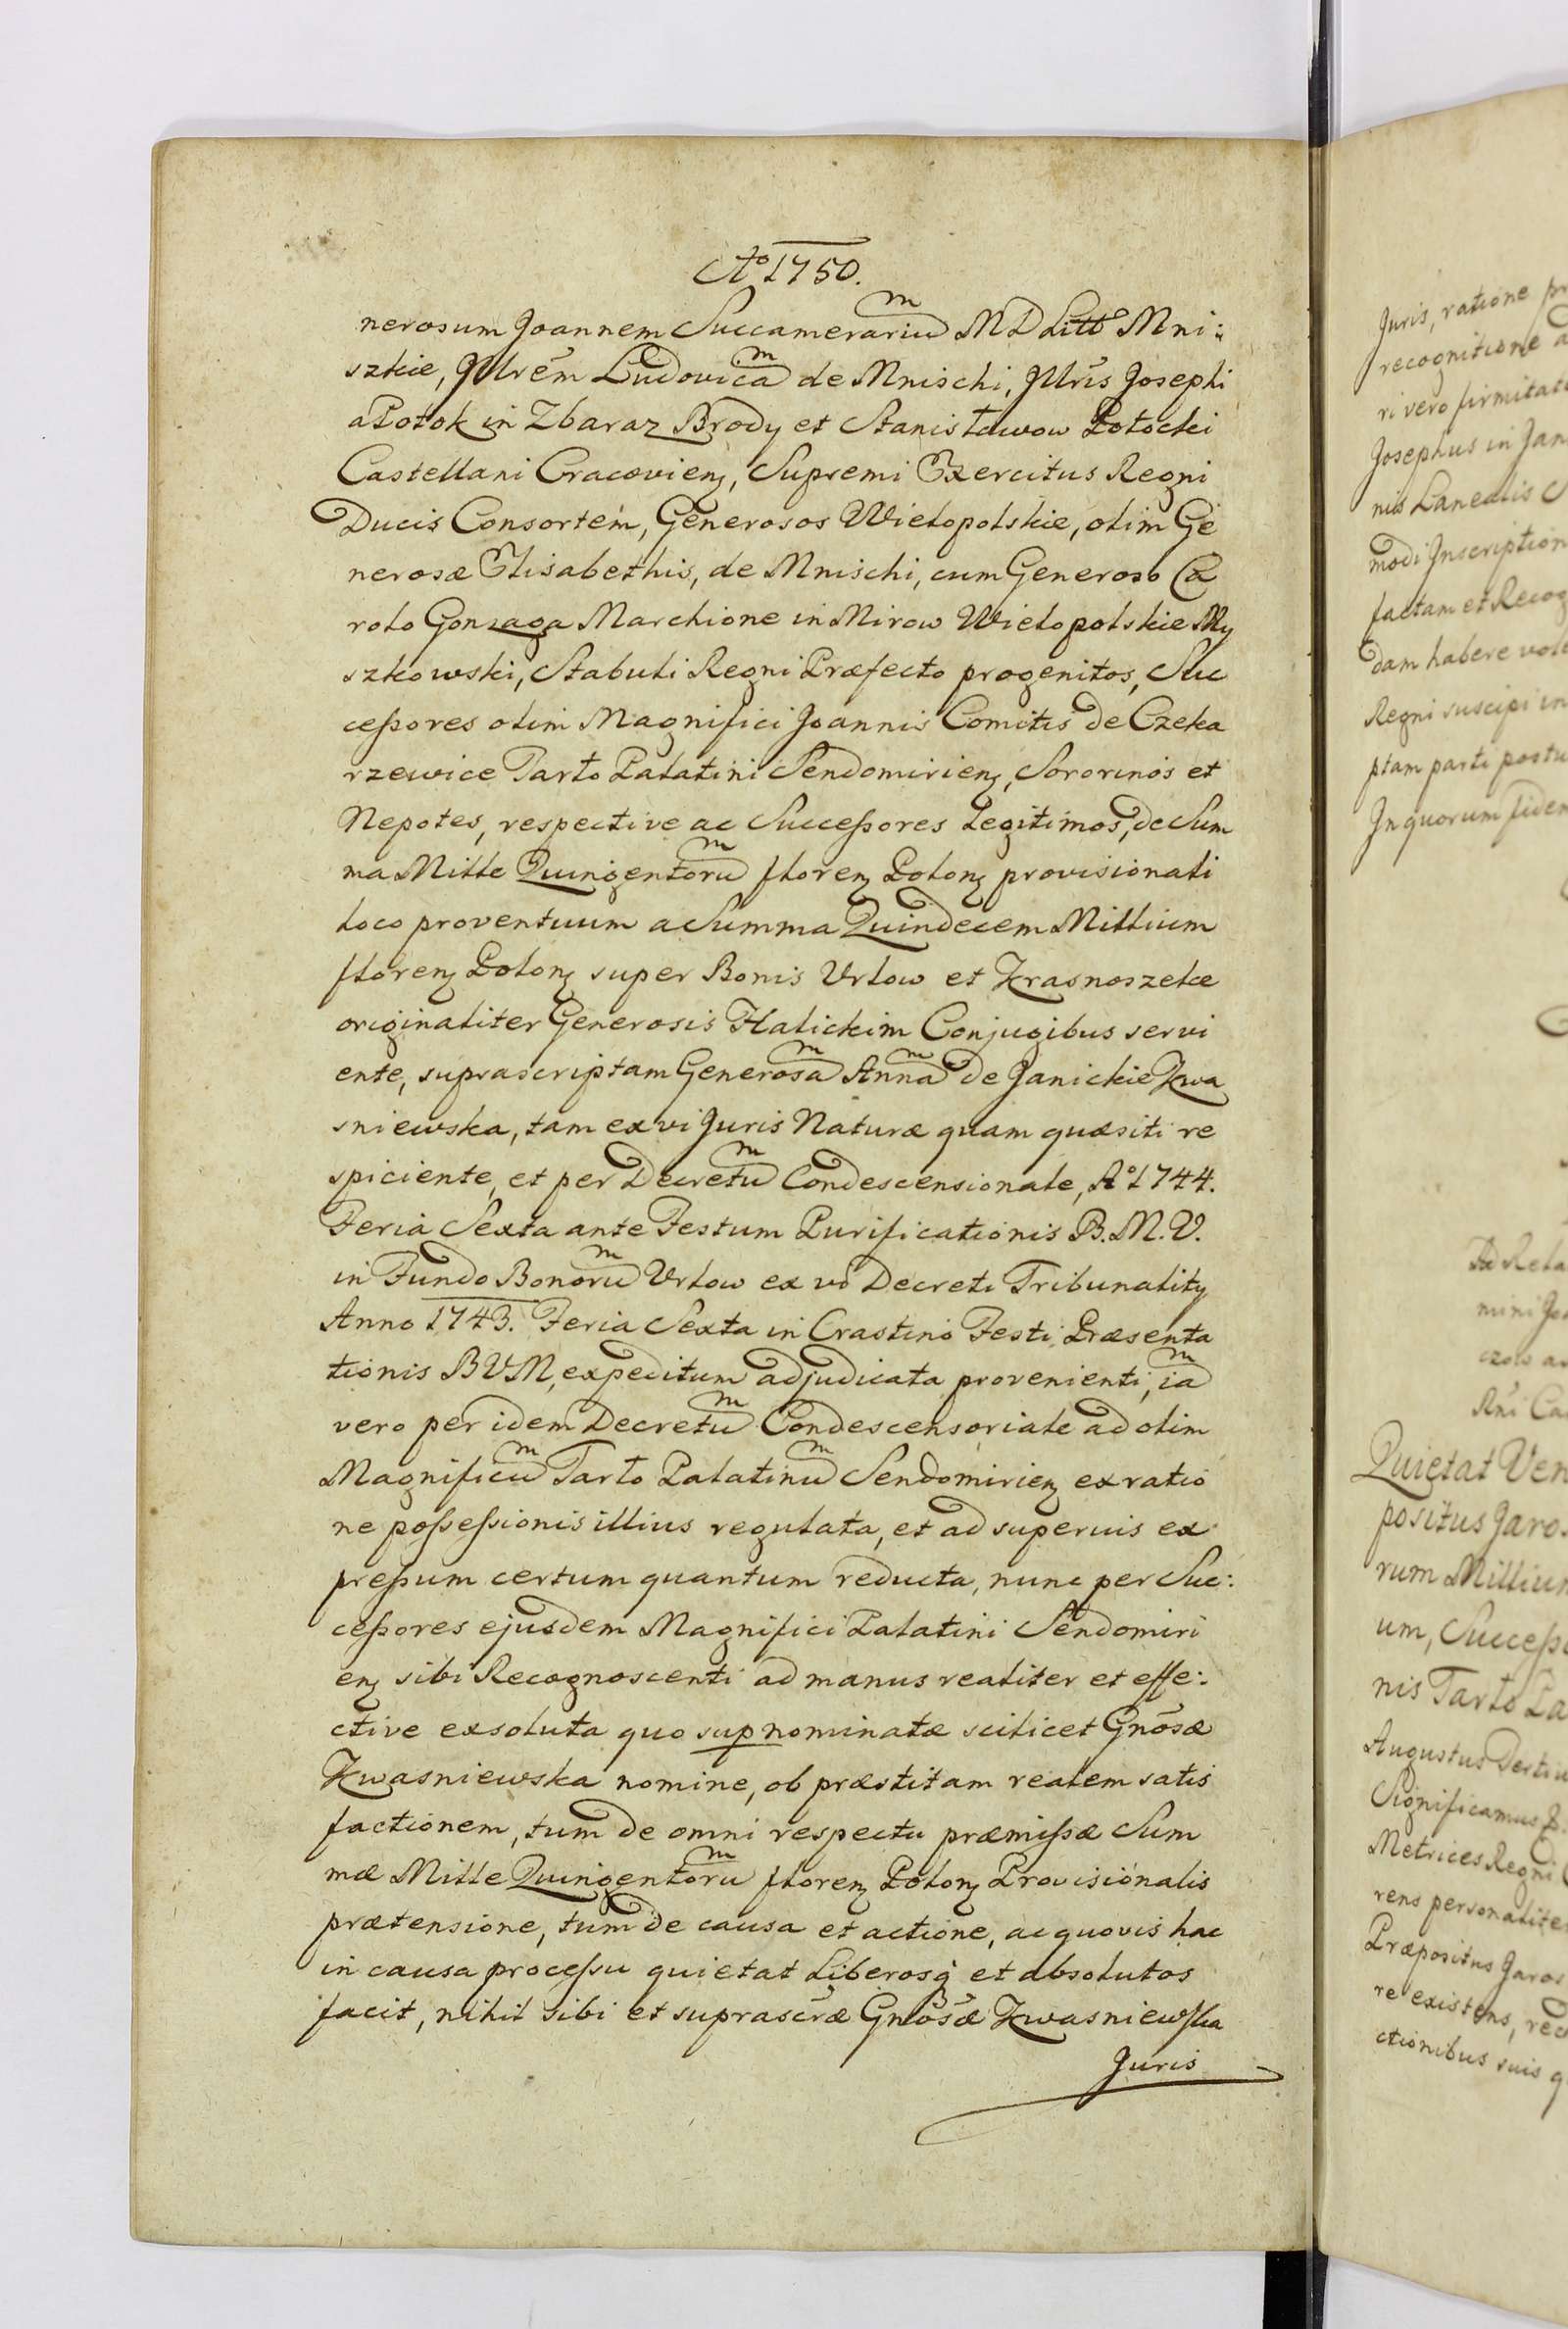 Aº 1750.
nerosum Joannem Succamerariũ M D Litt Mni:
szkie, Jllrēm Ludovicã de Mnischi, Jllrīs Josephi
a Potok in Zbaraz Brody et Stanisławow Potocki
Castellani Cracovien, Supremi Exercitus Regni
Ducis Consortem, Generosos Wielopolskie, olim Ge
nerosæ Elisabethis, de Mnischi, cum Generoso Ca
rolo Gonzaga Marchione in Mirow Wielopolskie My
szkowski, Stabuli Regni Præfecto progenitos, Suc
ceſsores olim Magnifici Joannis Comitis de Czeka
rzewice Tarło Palatini Sendomirien, Sororinos et
Nepotes, respective ac Succeſsores Legitimos, de Sum
ma Mille Quingentorũ floren Polon provisionali
loco proventuum a Summa Quindecem Millium
floren Polon super Bonis Urlow et Krasnoszelce
originaliter Generosis Halickim Conjugibus servi
ente, suprascriptam Generosã Annã de Janickie Kwa
sniewska, tam ex vi Juris Naturæ quam quæsiti re
spiciente, et per Decretũ Condescensionale, Aº 1744.
Feria Sexta ante Festum Purificationis B. M. V.
in Fundo Bonorũ Urlow ex vi Decreti Tribunality
Anno 1743. Feria Sexta in Crastino Festi Præsenta
tionis BVM, expeditum adjudicata provenienti, iã
vero per idem Decretũ Condescensoriale ad olim
Magnificũ Tarło Palatinũ Sendomirien ex ratio
ne poſseſsionis illius regulata, et ad superuis ex
preſsum certum quantum reducta, nunc per Suc:
ceſsores ejusdem Magnifici Palatini Sendomiri
en sibi Recognoscenti ad manus realiter et effe:
ctive exsoluta quo sup nominatæ scilicet Gnōsæ
Kwasniewska nomine, ob præstitam realem satis
factionem, tum de omni respectu præmiſsæ Sum
mæ Mille Quingentorũ floren Polon Provisionalis
prætensione, tum de causa et actione, ac quovis hac
in causa proceſsu quietat Liberosq̇ et absolutos
facit, nihil sibi et suprascr̄æ Gnōsæ Kwasniewſka
Juris
Juris, ratione
recognitione
ri vero firmitat
Josephus in Jan
nis Lanealis
modi Jnscription
factam et Recog
dam habere vole
Regni suscipi in
ptam parti postu
Jn quorum fidem
Ad Rela
mini Jo
Quietat Ven
positus Jaros
rum Millium
um, Succeſso
nis Tarło Pa
Augustus Tertiu
Significamus
Metrices Regni
rens personalite
Præpositus Jaros
re existens, rec
ctionibus suis q